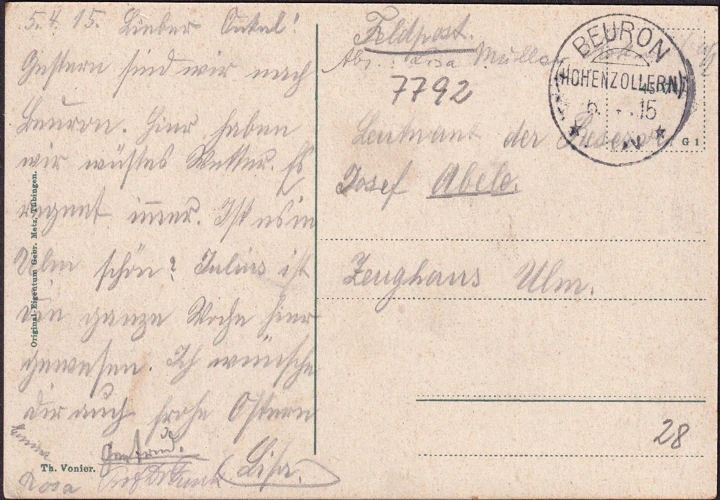 5.4.15. Lieber Onkel!
Gestern sind wir nach
Beuron. Hier haben
wir wüstes Wetter. Es
regnet immer. Ist es in
Ulm schön? Julius ist
die ganze Woche hier
gewesen. Ich wünsche
dir auch frohe Ostern
Lisa.
Rosa
Feldpost.
Abs.: Lisa Müller
7792
Leutnant der Reserve
Josef Abele.
Zeughaus Ulm.
28
BEURON
(HOHENZOLLERN)
6. 15
G 1
Original-Eigentum Gebr. Metz, Tübingen.
Th. Vonier.